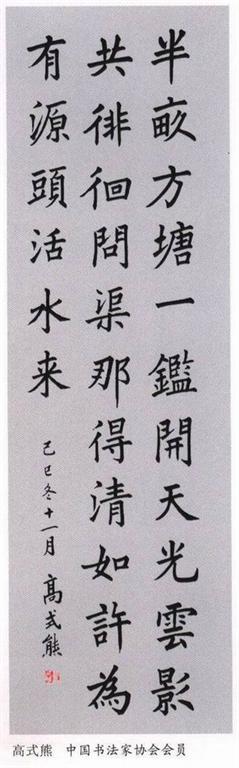 半畝方塘一鑑開天光雲影
共徘徊問渠那得清如許為
有源頭活水来
己巳冬十一月 高式熊
高式熊 中国书法家协会会员